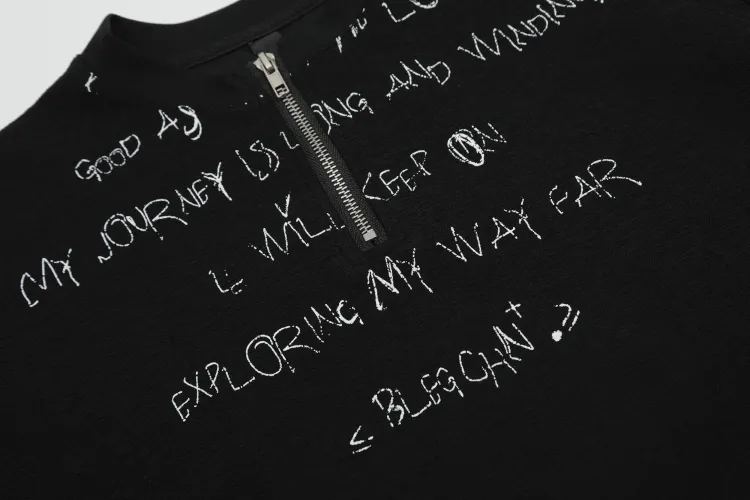 GOOD AS
MY JOURNEY IS LONG AND WINDING
I WILL KEEP ON
EXPLORING MY WAY FAR
≤ BLEGCHN+ .≥